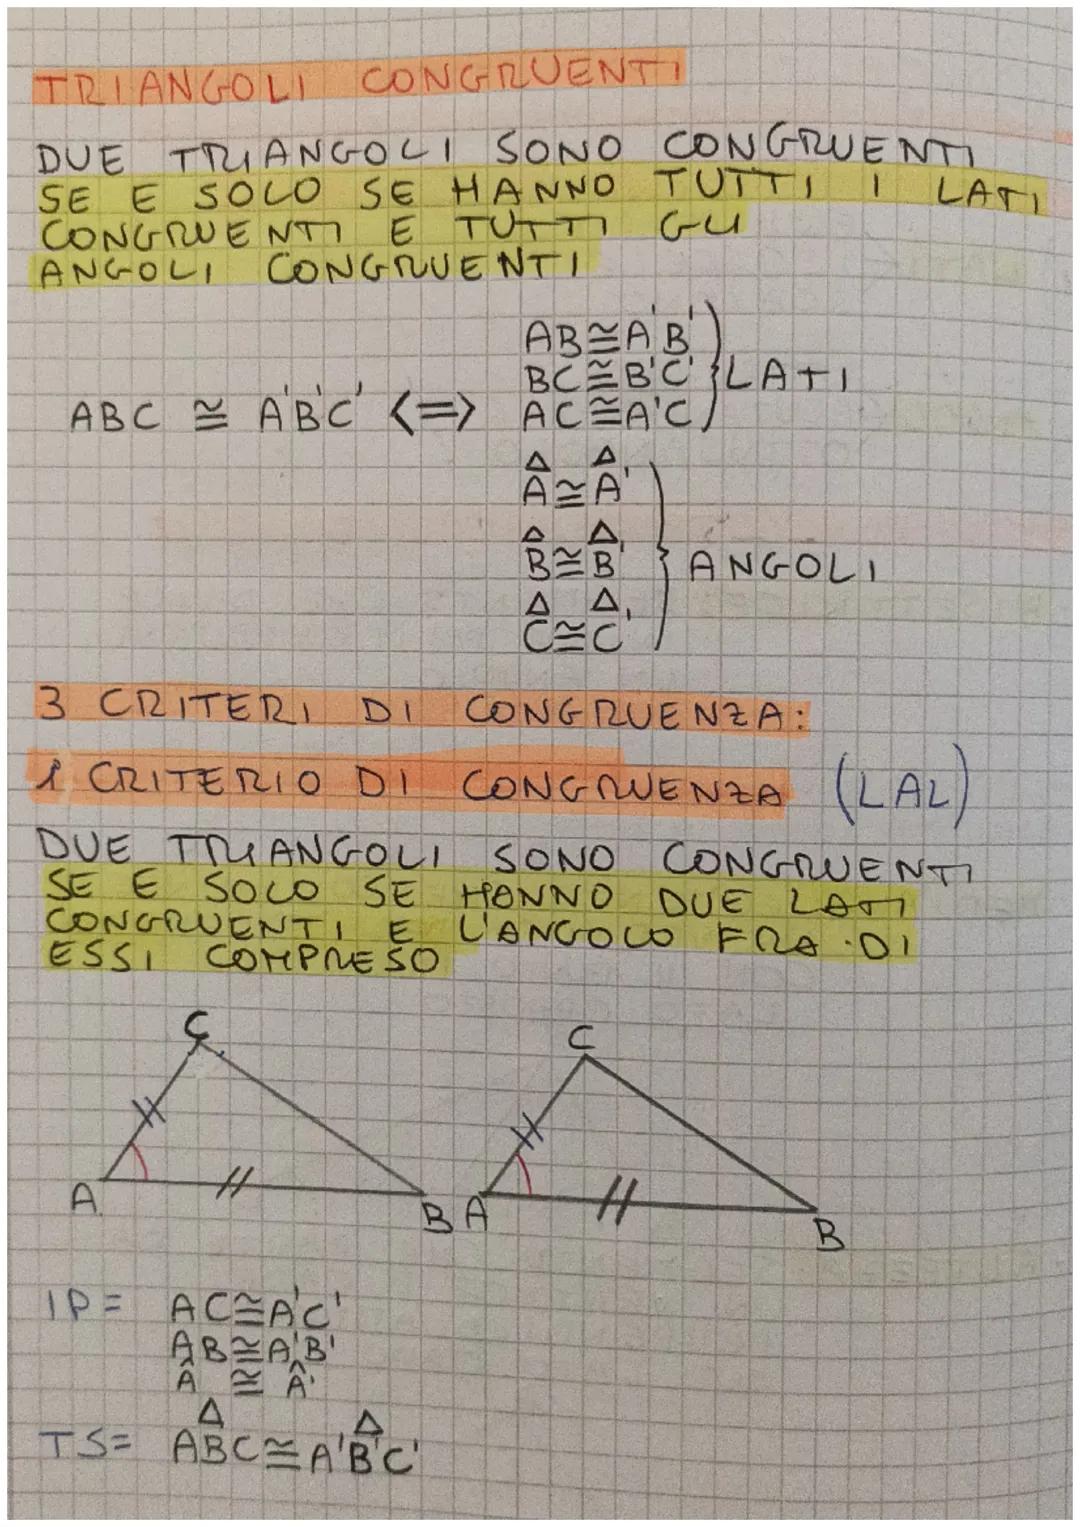 TRIANGOLI CONGRUENTI
DUE TRIANGOLI SONO CONGRUENTI
SE E SOLO SE HANNO TUTTI I LATI
CONGRUENTI E TUTTI GLI
ANGOLI CONGRUENTI
AB≅A'B'
BC≅B'C' } LATI
ABC ≅ A'B'C' <=> AC≅A'C
Â≅Â'
B̂≅B̂' } ANGOLI
Ĉ≅Ĉ'
3 CRITERI DI CONGRUENZA:
1 CRITERIO DI CONGRUENZA (LAL)
DUE TRIANGOLI SONO CONGRUENTI
SE E SOLO SE HANNO DUE LATI
CONGRUENTI E L'ANGOLO FRA DI
ESSI COMPRESO
C C
A B A B
IP= AC≅A'C'
AB≅A'B'
Â ≅ Â'
TS= ABC≅A'B'C'